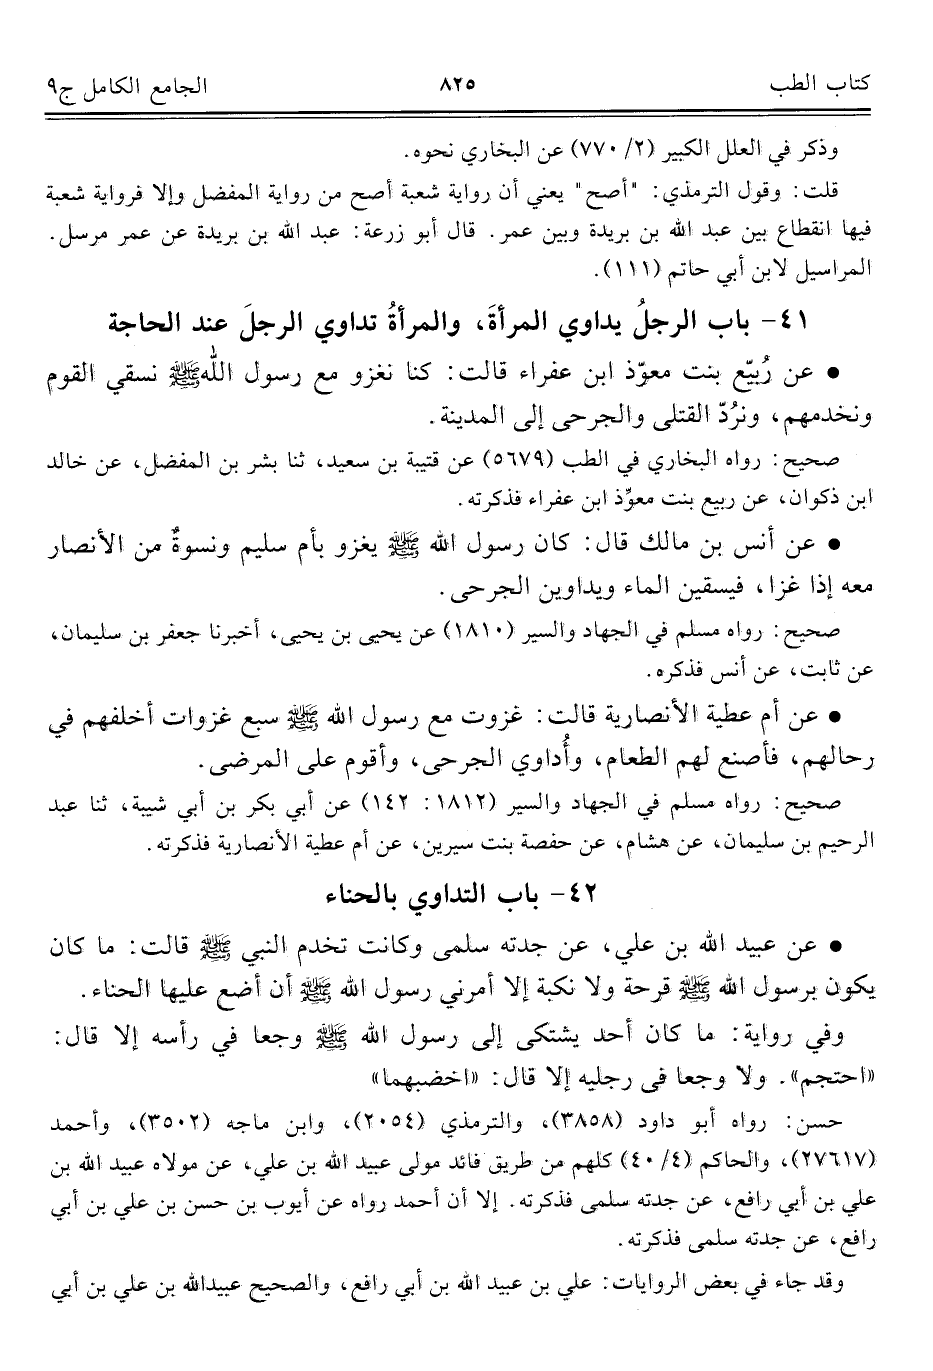 كتاب الطب ٨٢٥ الجامع الكامل ج٩
وذكر في العلل الكبير (٢/ ٧٧٠) عن البخاري نحوه.
قلت: وقول الترمذي: "أصح" يعني أن رواية شعبة أصح من رواية المفضل وإلا فرواية شعبة
فيها انقطاع بين عبد الله بن بريدة وبين عمر. قال أبو زرعة: عبد الله بن بريدة عن عمر مرسل.
المراسيل لابن أبي حاتم (١١١).
٤١- باب الرجلُ يداوي المرأةَ، والمرأةُ تداوي الرجلَ عند الحاجة
● عن رُبيّع بنت معوّذ ابن عفراء قالت: كنا نغزو مع رسول الله ﷺ نسقي القوم
ونخدمهم، ونرُدّ القتلى والجرحى إلى المدينة.
صحيح: رواه البخاري في الطب (٥٦٧٩) عن قتيبة بن سعيد، ثنا بشر بن المفضل، عن خالد
ابن ذكوان، عن ربيع بنت معوِّذ ابن عفراء فذكرته.
● عن أنس بن مالك قال: كان رسول الله ﷺ يغزو بأم سليم ونسوةٌ من الأنصار
معه إذا غزا، فيسقين الماء ويداوين الجرحى.
صحيح: رواه مسلم في الجهاد والسير (١٨١٠) عن يحيى بن يحيى، أخبرنا جعفر بن سليمان،
عن ثابت، عن أنس فذكره.
● عن أم عطية الأنصارية قالت: غزوت مع رسول الله ﷺ سبع غزوات أخلفهم في
رحالهم، فأصنع لهم الطعام، وأُداوي الجرحى، وأقوم على المرضى.
صحيح: رواه مسلم في الجهاد والسير (١٨١٢: ١٤٢) عن أبي بكر بن أبي شيبة، ثنا عبد
الرحيم بن سليمان، عن هشام، عن حفصة بنت سيرين، عن أم عطية الأنصارية فذكرته.
٤٢- باب التداوي بالحناء
● عن عبيد الله بن علي، عن جدته سلمى وكانت تخدم النبي ﷺ قالت: ما كان
يكون برسول الله ﷺ قرحة ولا نكبة إلا أمرني رسول الله ﷺ أن أضع عليها الحناء.
وفي رواية: ما كان أحد يشتكى إلى رسول الله ﷺ وجعا في رأسه إلا قال:
«احتجم». ولا وجعا فى رجليه إلا قال: «اخضبهما»
حسن: رواه أبو داود (٣٨٥٨)، والترمذي (٢٠٥٤)، وابن ماجه (٣٥٠٢)، وأحمد
(٢٧٦١٧)، والحاكم (٤/ ٤٠) كلهم من طريق فائد مولى عبيد الله بن علي، عن مولاه عبيد الله بن
علي بن أبي رافع، عن جدته سلمى فذكرته. إلا أن أحمد رواه عن أيوب بن حسن بن علي بن أبي
رافع، عن جدته سلمى فذكرته.
وقد جاء في بعض الروايات: علي بن عبيد الله بن أبي رافع، والصحيح عبيدالله بن علي بن أبي